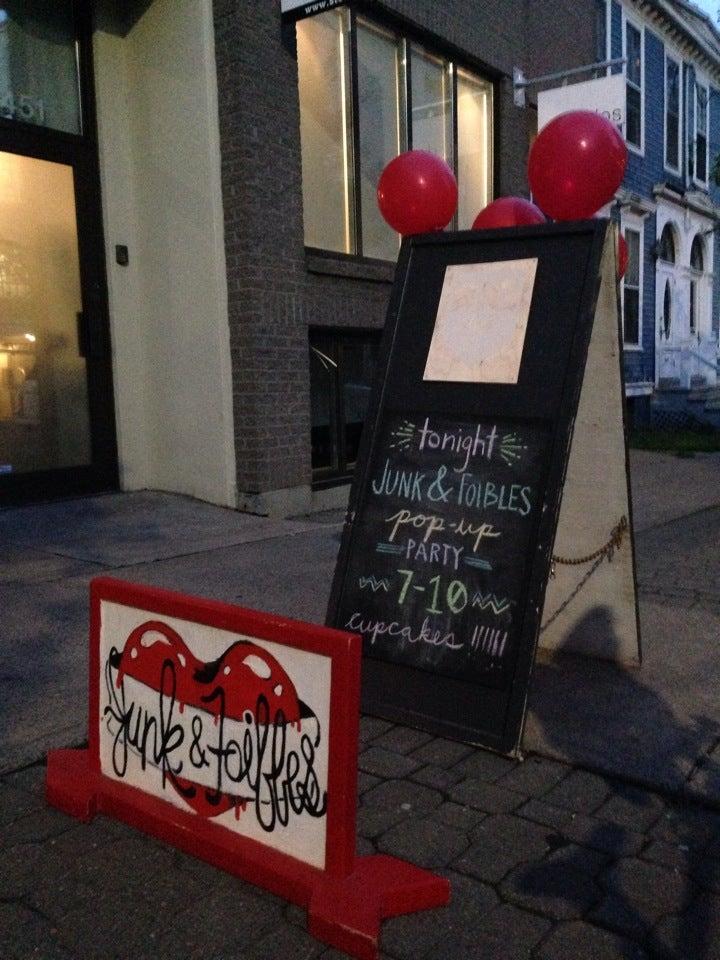 451
tonight
JUNK & FOIBLES
pop-up
PARTY
7-10
cupcakes !!!!!!
Junk & Foibles